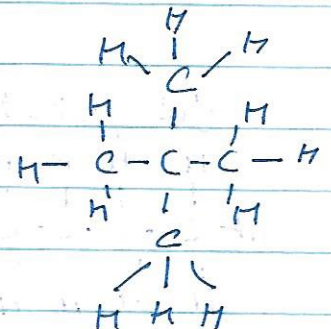 H
H H
C
H H
H - C - C - C - H
H H
C
H H H